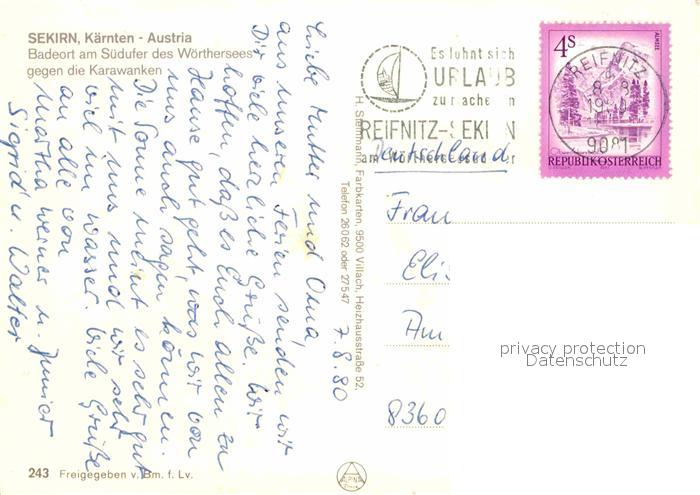 SEKIRN, Kärnten - Austria
Badeort am Südufer des Wörthersees
gegen die Karawanken
Liebe Mutter und Oma,
aus unseren Ferien senden wir
Dir viele herzliche Grüße. Wir
hoffen, daß es Euch allen zu
Hause gut geht, was wir von
uns auch sagen können.
Die Sonne meint es sehr gut
mit uns und wir sehr
viel im Wasser. Viele Grüße
an alle von
Martha Werner u. Junior
Sigrid u. Walter
7.8.80
H. Steinmann, Farbkarten, 9500 Villach, Heizhausstraße 52,
Telefon 26062 oder 27547
Es lohnt sich
URLAUB
zu machen in
REIFNITZ-SEKIRN
am Wörthersee
4S
ALMSEE
REIFNITZ
9081
REPUBLIK ÖSTERREICH
Deutschland
Frau
Elis
Am
8360
privacy protection
Datenschutz
243 Freigegeben v. Bm. f. Lv.